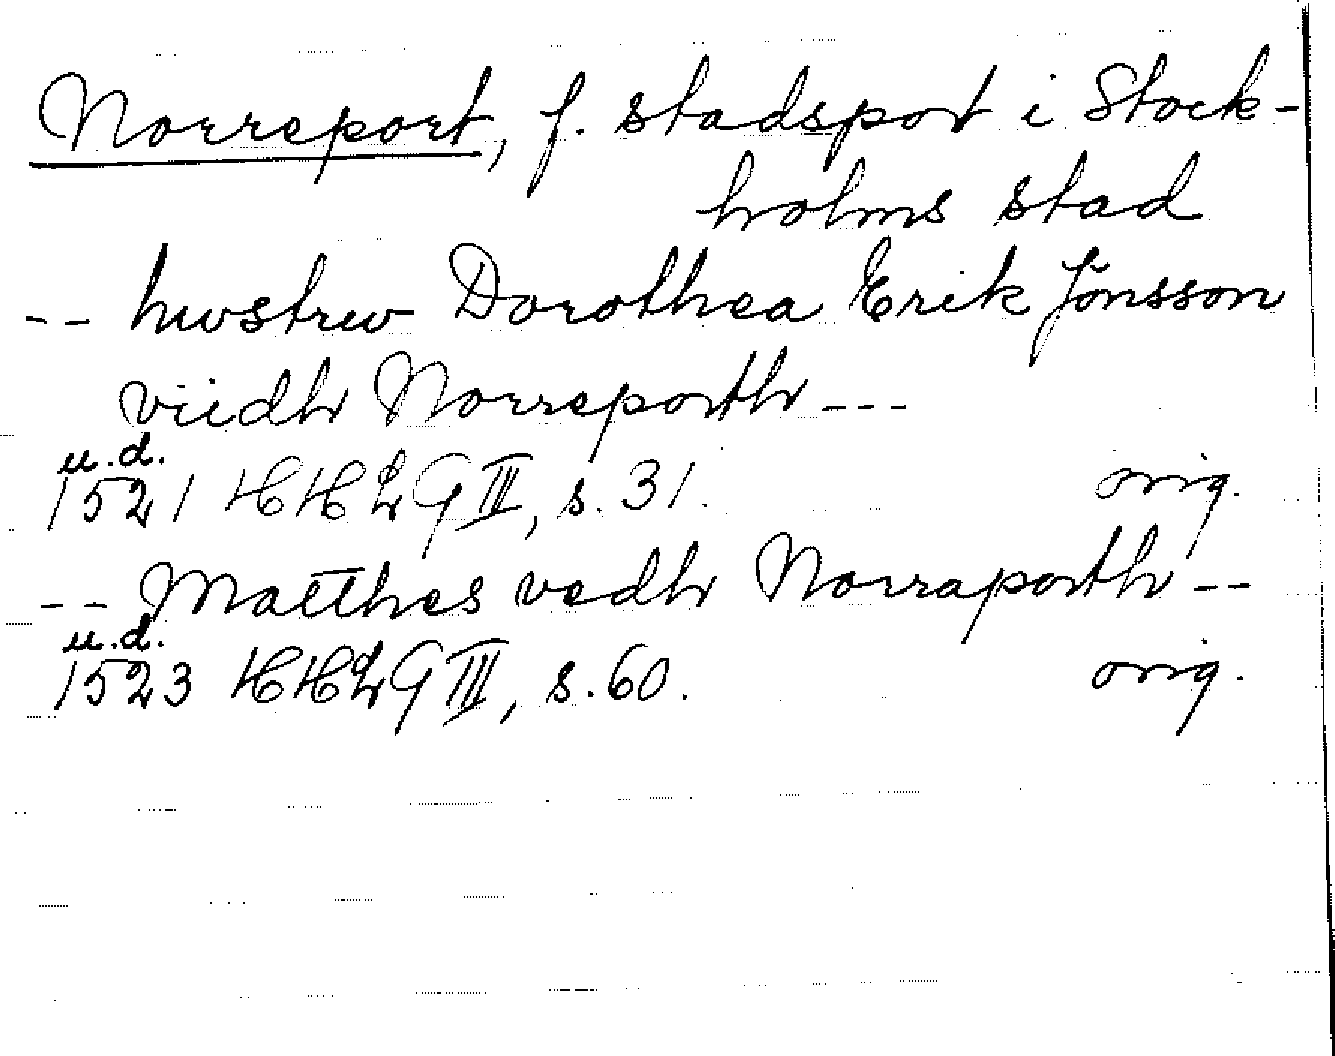 Norreport, f. stadsport i Stock-
holms stad
-- hwstrw Dorothea Erik Jönsson
viidh Norreporth ---
u.d.
1521 HHLG III, s. 31. orig.
-- Matthes vedh Norraporth --
u.d.
1523 HHLG III, s. 60. orig.